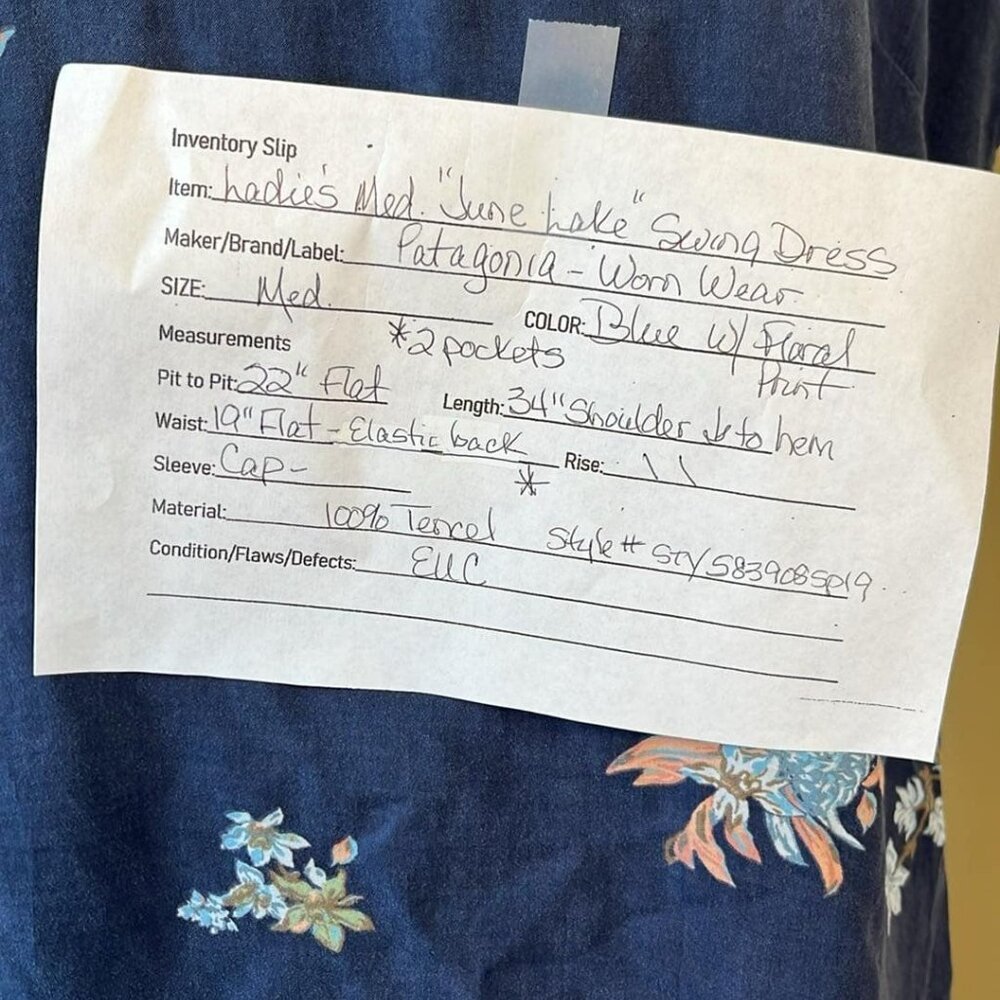 Inventory Slip
Item: Ladie's Med. "June Lake" Swing Dress
Maker/Brand/Label: Patagonia - Worn Wear
SIZE: Med. COLOR: Blue w/ Floral Print
Measurements *2 pockets
Pit to Pit: 22" Flat Length: 34" Shoulder ↓ to hem
Waist: 19" Flat - Elastic back * Rise: \ \
Sleeve: Cap-
Material: 100% Tencel Style # STY58390SSP19
Condition/Flaws/Defects: EUC